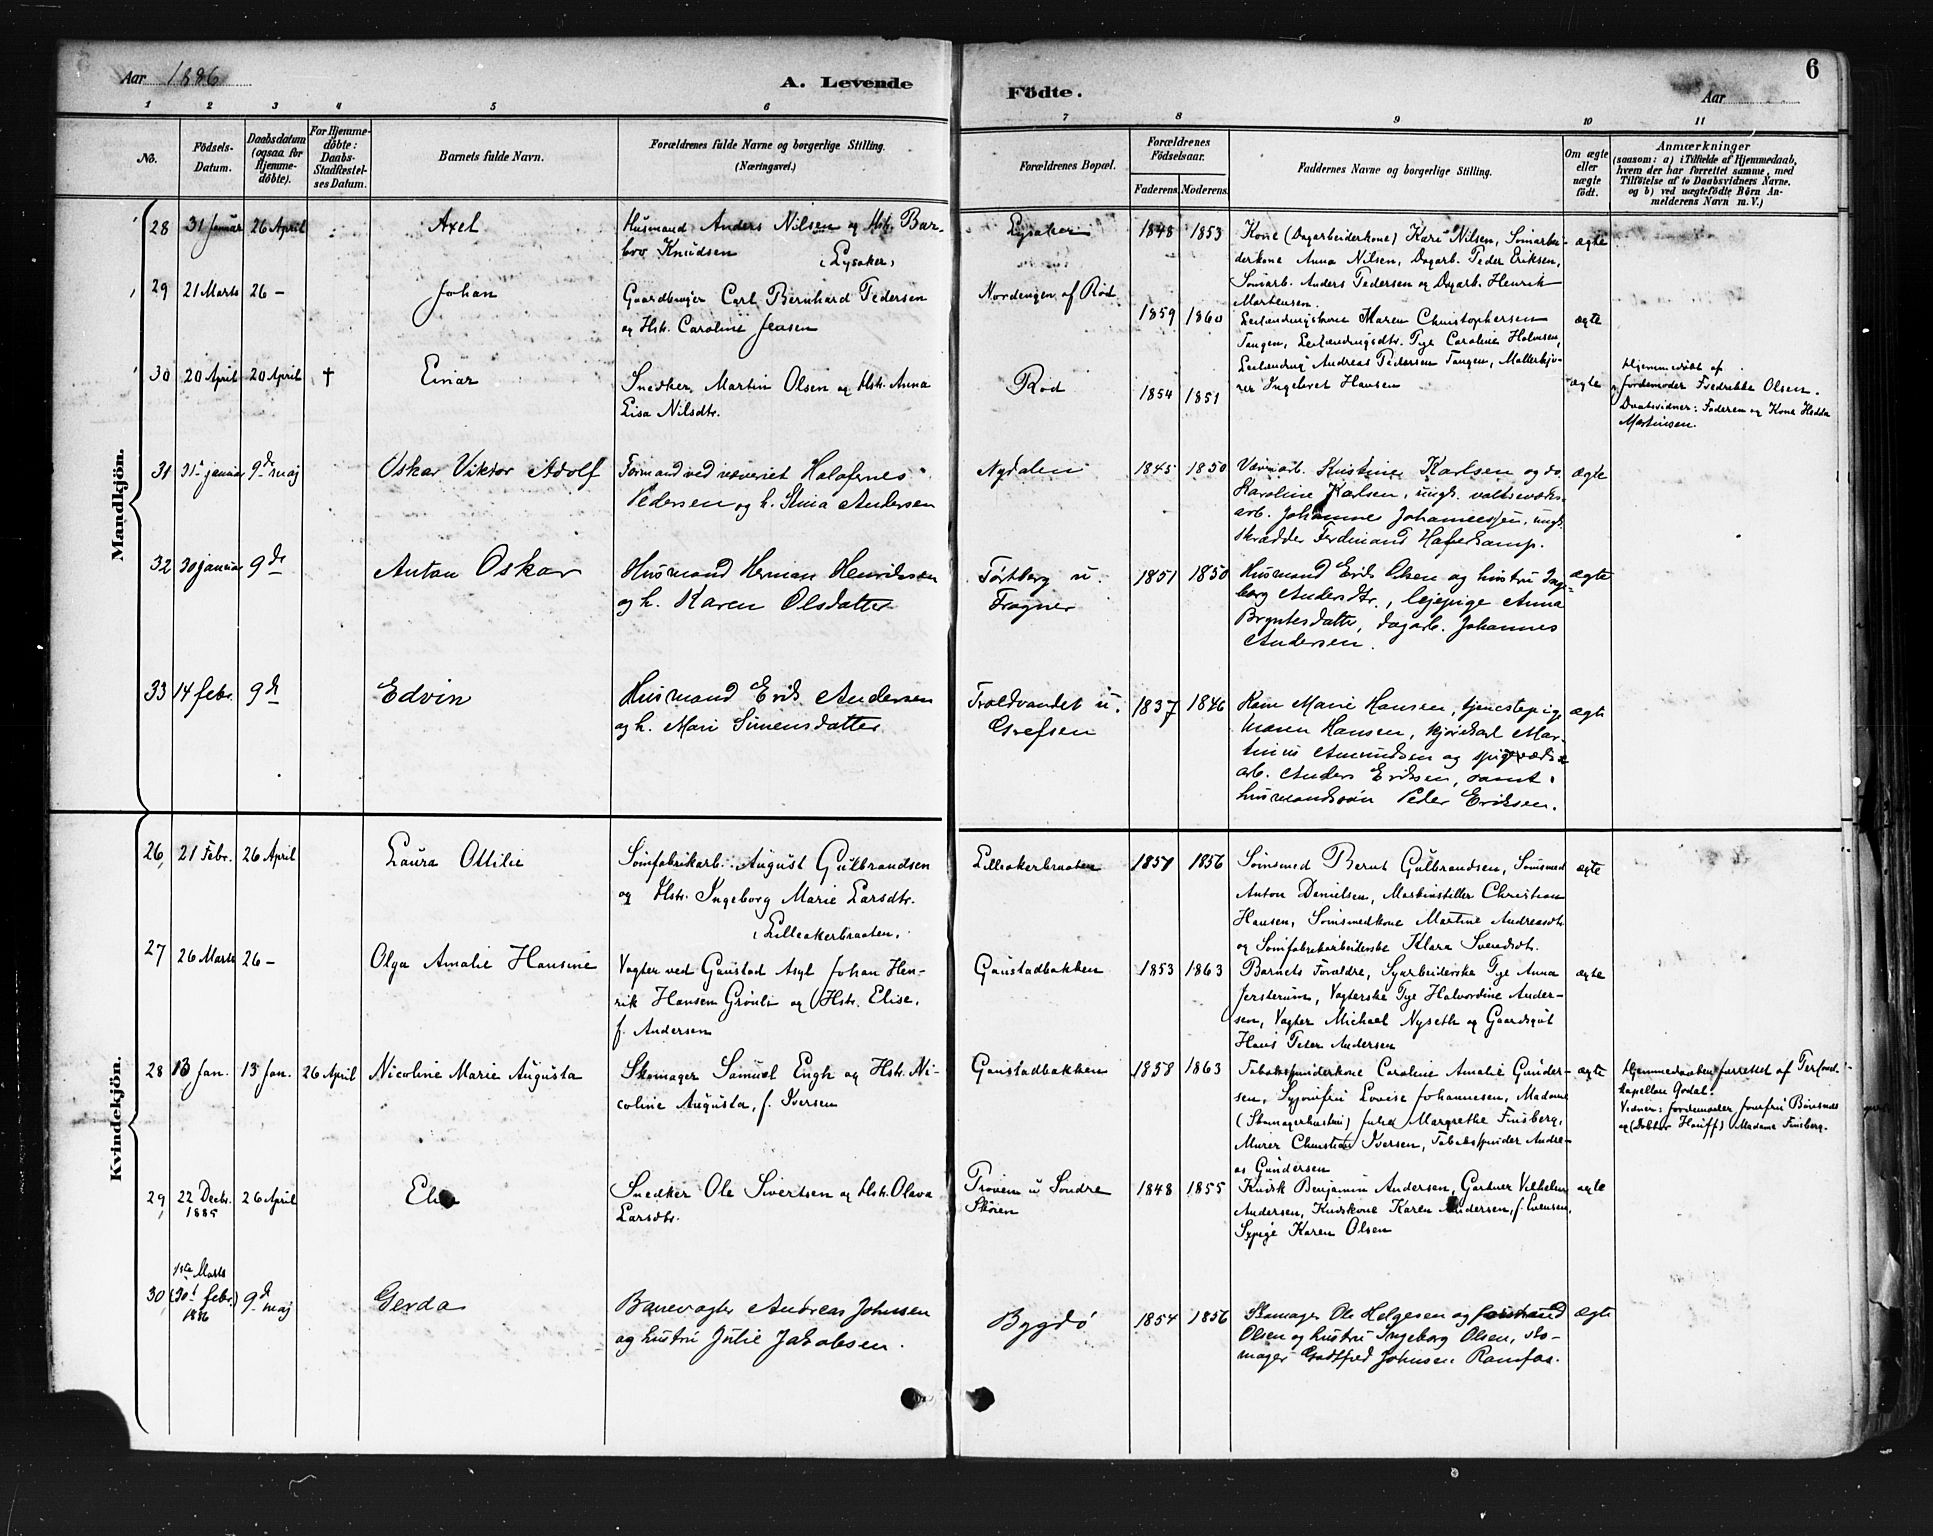 Aar 1886
A. Levende
Födte.
Aar
6
1 2 3 4 5 6 7 8 9 10 11
No.
Födsels-
Datum.
Daabsdatum
(ogsaa for
Hjemme-
döbte).
For Hjemme-
döbte:
Daabs-
Stadfæstel-
ses Datum.
Barnets fulde Navn.
Forældrenes fulde Navne og borgerlige Stilling.
(Næringsvei.)
Forældrenes Bopæl.
Forældrenes
Födselsaar.
Faderens. Moderens.
Faddernes Navne og borgerlige Stilling.
Om ægte
eller
uægte
født.
Anmærkninger
(saasom: a) i Tilfælde af Hjemmedaab,
hvem der har forrettet samme, med
Tilföielse af to Daabsvidners Navne.
og b) ved uægtefödte Börn An-
melderens Navn m. V.)
Mandkjön.
28 31 Januar 26 April Axel
Husmand Anders Nilsen og Hst. Bar-
bro Knudsen
(Lysaker)
Lysaker 1848 1853
Kone (Dagarbeiderkone) Kari Nilsen, Sömarbei-
derkone Anna Nilsen, Dagarb. Peder Eriksen,
Sömarb. Anders Pedersen og Dagarb. Henrik
Martensen.
ægte
29 21 Marts 26 — Johan
Gaardbruger Carl Bernhard Pedersen
og Hst. Caroline Jensen
Nordengen af Röd 1859 1860
Leilændingskone Maren Christophersen
Tangen, Leilændingsdtr. Pge Caroline Halvorsen,
Leilænding Andreas Pedersen Tangen, Møllerkjø-
rer Ingebret Hansen
ægte
30 20 April 20 April † Einar
Snedker Martin Olsen og Hst. Anna
Lisa Nilsdtr.
Röd 1854 1851
ægte
Hjemmedöbt af
Jordemoder Fredrikke Olsen.
Daabsvidner: Faderen og Kone Hedda
Martinsen.
31 31 januar 9de maj Oskar Viktor Adolf
Formand ved væveriet Halofernes
Pedersen og h. Stina Andersen
Nydalen 1845 1850
Væverarb. Kristine Karlsen og do.
Karoline Karlsen, ungk. valseværks-
arb. Johannes Johannessen, ungk.
skrædder Ferdinand Haferkamp.
ægte
32 30 januar 9de Anton Oskar
Husmand Herman Henriksen
og h. Karen Olsdatter
Tørtberg u.
Frogner
1851 1850
Husmand Erik Olsen og hustru Inge-
borg Andersdtr., lejepige Anna
Bryntesdatter, dagarb. Johannes
Andersen.
ægte
33 14 febr. 9de Edvin
Husmand Erik Andersen
og h. Mari Simensdatter
Troldvandet u.
Grefsen
1837 1846
Kone Marie Hansen, tjenestepige
Hansen, Mar-
tinius Amundsen og
arb. Anders Eriksen, samt
husmandssøn Peder Eriksen.
ægte
Kvindekjön.
26, 21 Febr. 26 April Laura Ottilie
Sömfabrikarb. August Gulbrandsen
og Hstr. Ingeborg Marie Larsdtr.
(Lilleakerbraaten)
Lilleakerbraaten 1857 1856
Sömsmed Bernt Gulbrandsen, Sömsmed
Anton Danielsen, Maskinstiller Christian
Hansen, Sömsmedkone Martine Andreasdtr.
og Sömfabrikarbeiderske Klara Svendsdtr.
ægte
27 26 Marts 26 — Olga Amalie Hansine
Vagter ved Gaustad Asyl Johan Hen-
rik Hansen Grönli og Hstr. Elise,
f. Andersen
Gaustadbakken 1853 1863
Barnets Forældre, Syarbeiderske Pge Anna
Jersterum, Vogterske Pge Halvordine Ander-
sen, Vagter Michael Nyseth og Gaardsgut
Hans Peter Andersen
ægte
28 13 Jan. 13 Jan. 26 April Nicoline Marie Augusta
Skomager Samuel Engh og Hstr. Ni-
coline Augusta, f. Iversen
Gaustadbakken 1858 1863
Tobakspinderkone Caroline Amalie Gunder-
sen, Syjomfru Lovise Johannesen, Madame
(Skomagerhustru) Julia Margrethe Finsberg,
Murer Christian Iversen, Tobakspinder Andre-
as Gundersen
ægte
Hjemmedaaben forrettet af Personel-
kapellan Godal.
Vidner: Jordemoder Jomfru Börresen
og (Doktor Hauff) Madame Finsberg.
29, 22 Decbr.
1885
26 April Elise
Snedker Ole Sivertsen og Hst. Olava
Larsdtr.
Prøven u Søndre
Skøien
1848 1855
Kudsk Benjamin Andersen, Gartner Vilhelm
Andersen, Kudskone Karen Andersen, f. Svensen,
Sypige Karen Olsen
ægte
30, 1ste Marts
(30 febr.)
1886
9de maj Gerda
Banevogter Andreas Johnsen
og hustru Julie Jakobsen.
Bygdø 1854 1856
Skomager Ole Helgesen og formand
Olsen og hustru Ingeborg Olsen, sko-
mager Godtfred Johnsen Ramfos.
ægte